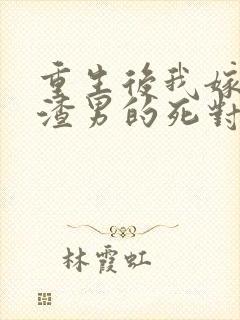 重生後我嫁
渣男的死對
林霞虹